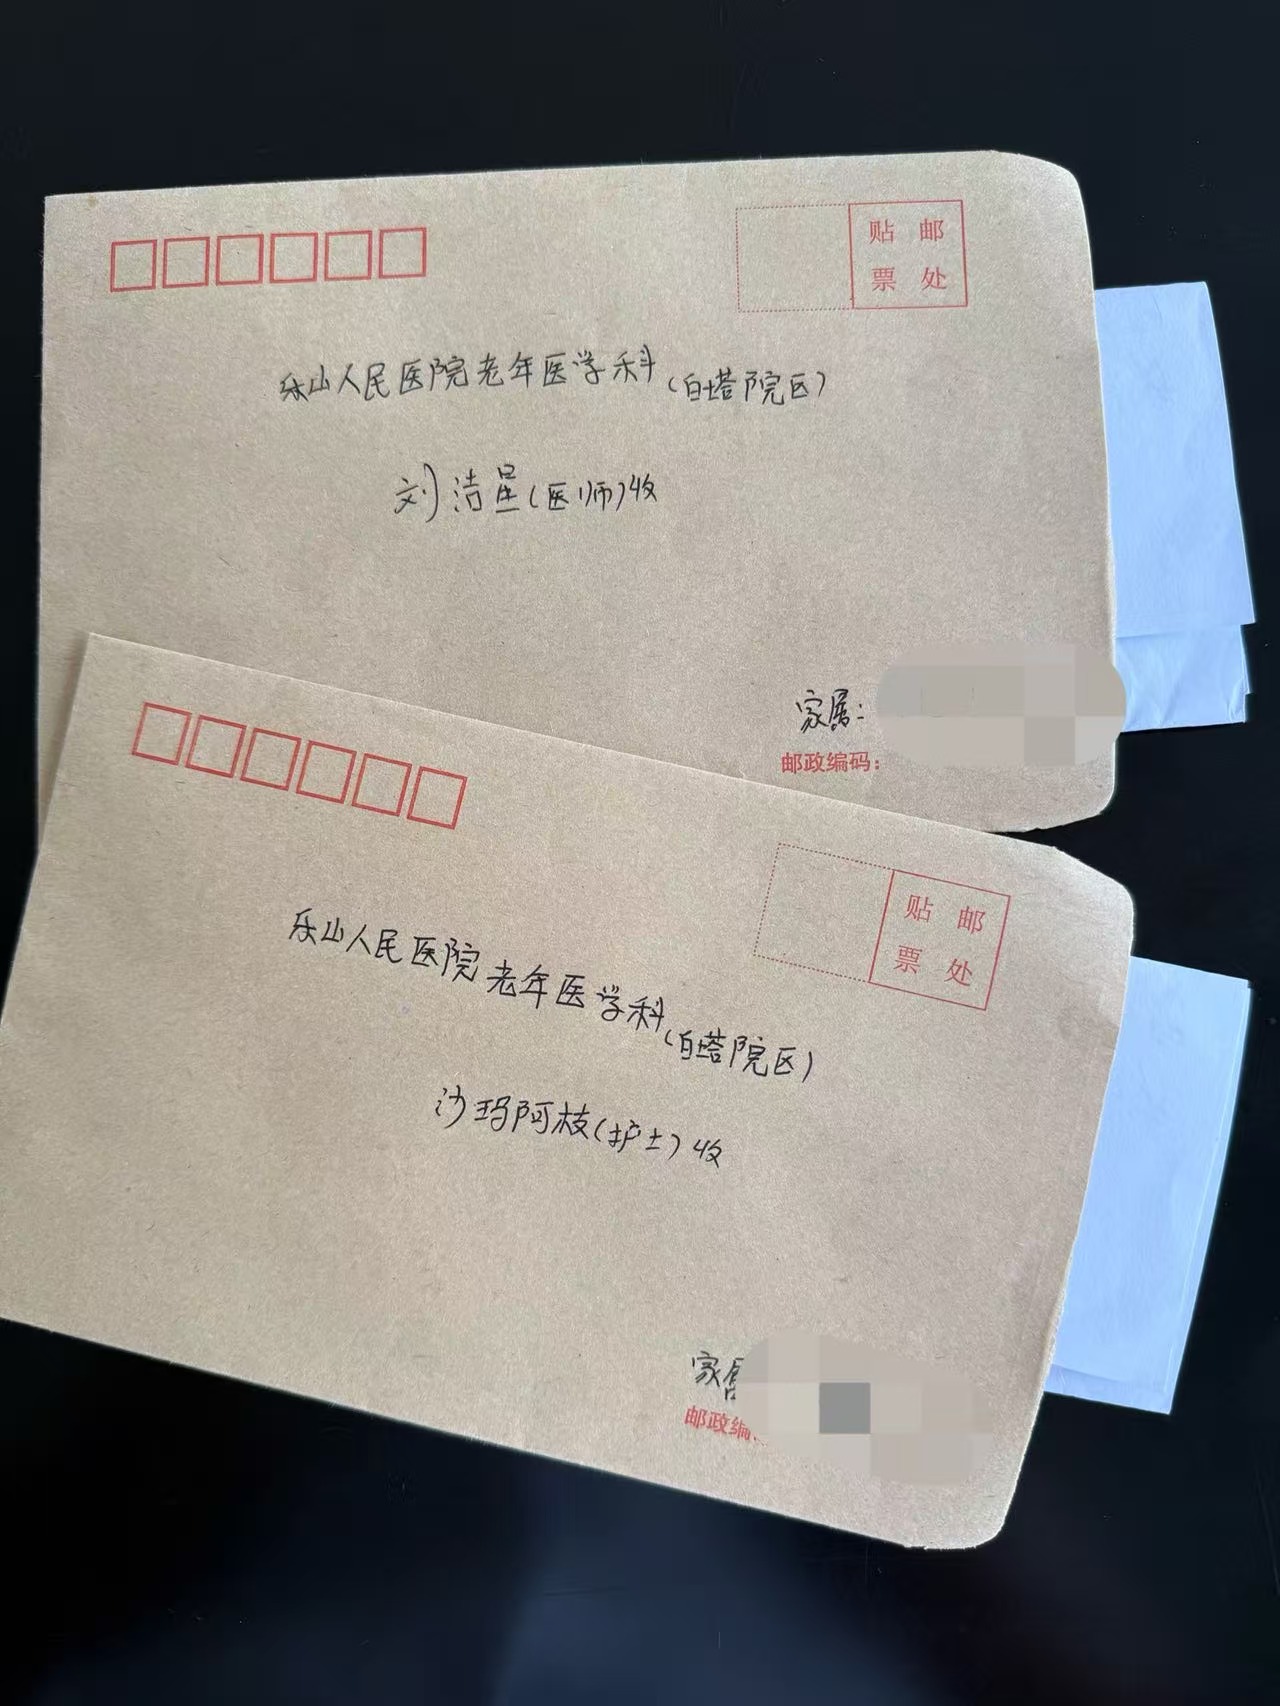 贴 邮
票 处
乐山人民医院老年医学科(白塔院区)
刘洁星(医师)收
家属:
邮政编码:
贴 邮
票 处
乐山人民医院老年医学科(白塔院区)
沙玛阿枝(护士)收
家属
邮政编